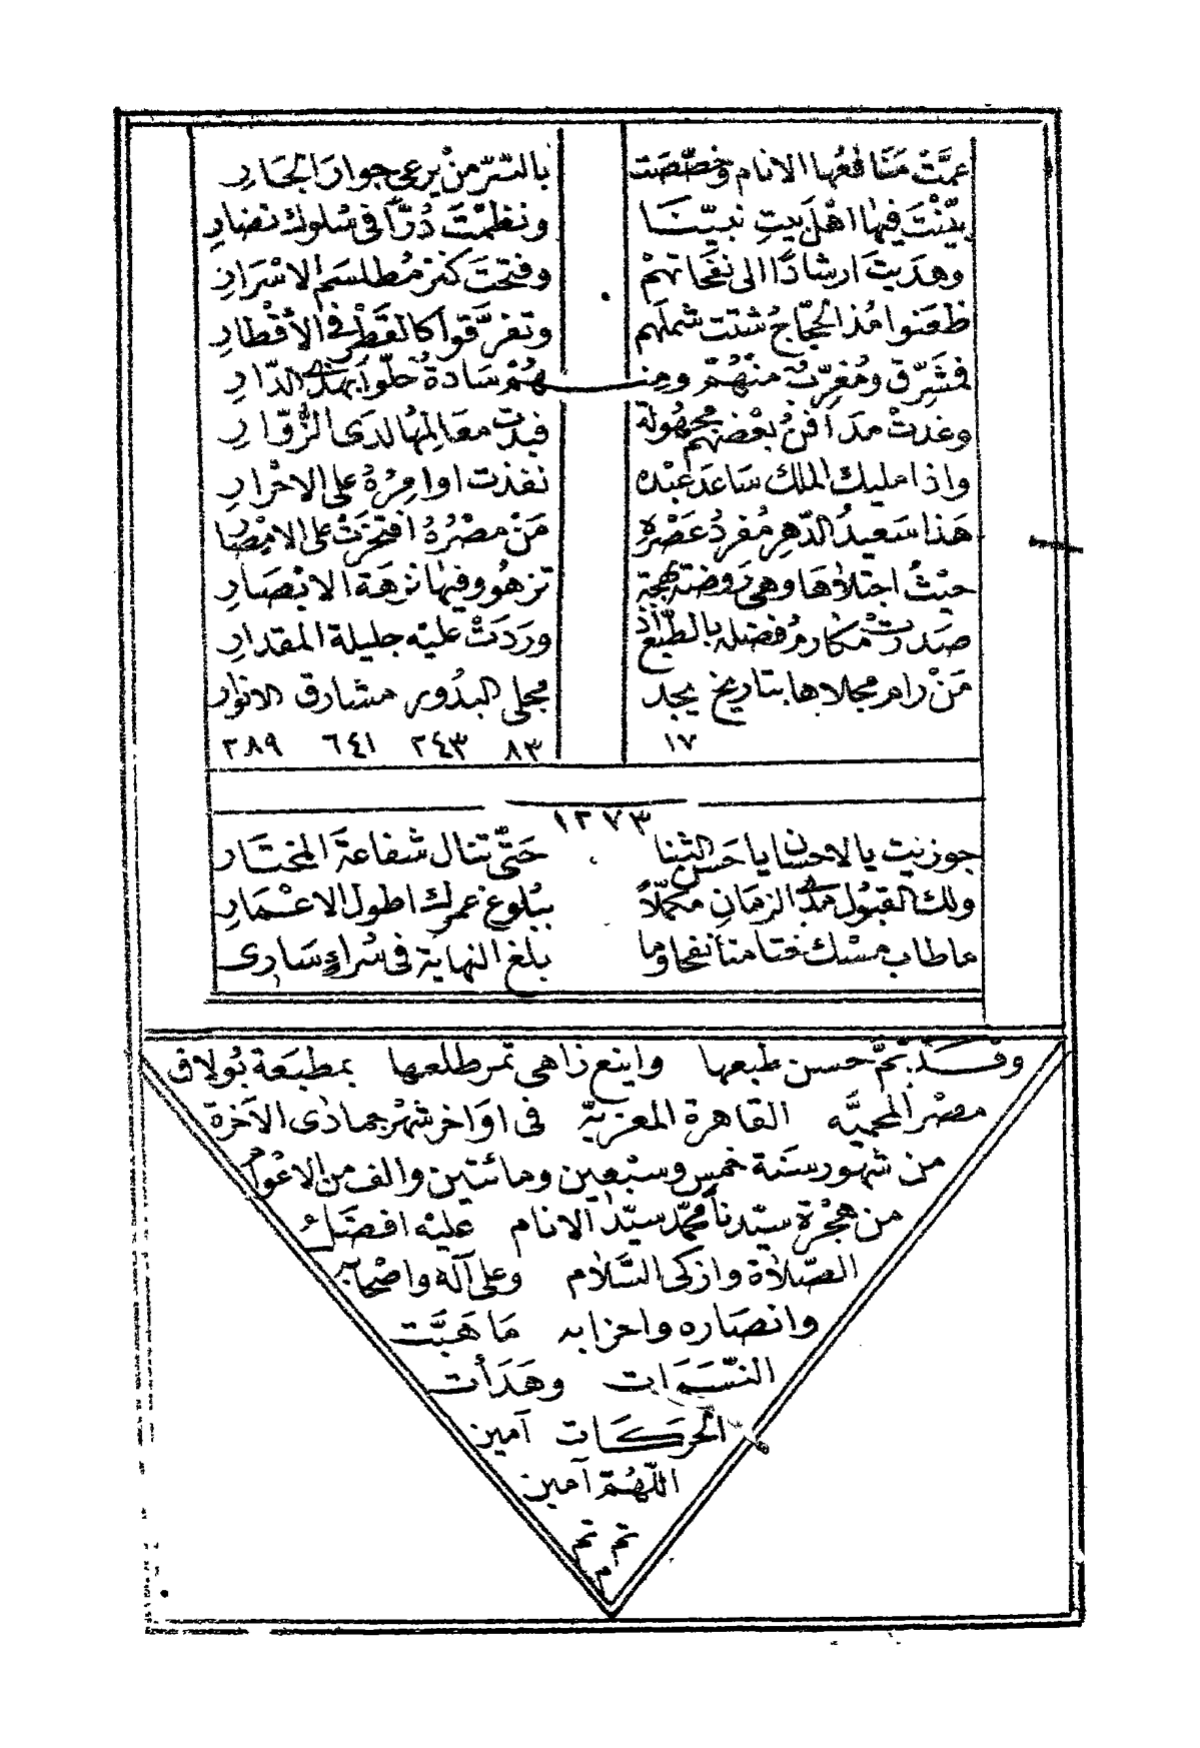 عمَّتْ مَنَافعُها الانام وخصّصَت بالسّرّ منْ يرعى جوارَ الجَارِ
بيّنْتَ فيها اهْلَ بيتِ نبيّنَا ونظمْتَ دُرًّا فى سُلوك نضارِ
وهدَيتَ ارشادًا الى نفحَاتهمْ وفتحتَ كنز مُطلسَم الاسْرَارِ
ظعَنوا مُذ الحجّاجُ شتت شملَهم وتفرَّقوا كالقطْر فى الأقْطارِ
فمشَرِّق ومُغرِّبٌ منْهُمْ ومِنـ ـهُمْ سَادةٌ حَلّوا بهذى الدّارِ
وغدتْ مدَافنُ بعْضهم مجهُولة فبدَت معَالمهَا لدَى الزُّوّارِ
واذا مليك الملك سَاعدَ عبْده نفذت اوامِرُهُ على الاحْرارِ
هَذا سَعيدُ الدّهرِ مُفردُ عَصْرهِ مَنْ مصْرُهُ افتخرَتْ على الامْصَار
حيْثُ اجتلاهَا وهى رَوضَة بهجة تزهُو وفيهَا نزهَة الابْصَارِ
صَدرتْ مكارمُ فضله بالطّبْع اذْ ورَدَتْ عليْه جليلة المقدارِ
مَنْ رام مجلاها بتاريخ يجد مجلى البدُور مشارق الانوار
١٧ ٨٣ ٢٤٣ ٦٤١ ٢٨٩
١٢٧٣
جوزيت بالاحسان يا حَسَن الثنا حَتّى تنال شفاعَة المختَار
ولك القبُول مدَى الزمَانِ مكمّلاً ببُلوغ عمرك اطول الاعْمَارِ
ما طاب مسْك ختامنا نفحا وما بلغ النهاية فى سُراهِ سَارى
وقد تمَّ حسن طبعها واينع زاهى ثمر طلعها بمطبَعَة بُولاق
مصْر المحميَّه القاهرة المعزيّة فى اوَاخر شهْر جمادَى الآخرة
من شهُور سَنة خمس وسبْعين ومائتين والف من الاعْوام
من هجْرة سيّدنَا محمّد سيّد الانام عليْه افضَلُ
الصّلاة وازكى السَّلام وعلى آله واصْحابه
وانصَاره واحزابه مَا هَبَّت
النّسَمَات وهَدَأت
الحرَكَات آمين
اللّهُمّ آمين
تم تم
م